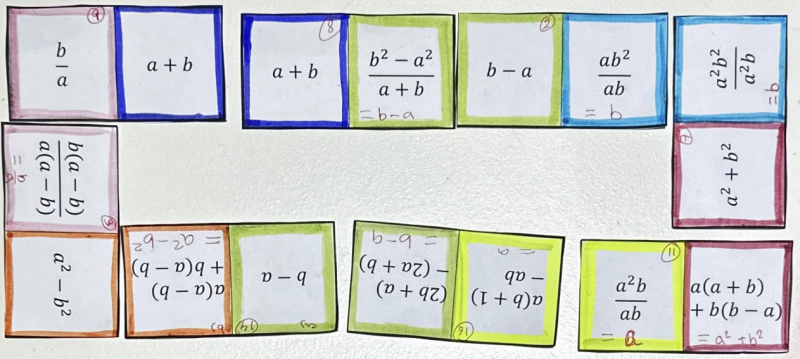 b
a
a + b
8
a + b
b² − a²
a + b
= b-a
b − a
ab²
ab
= b
a²b²
a²b
= b
a² + b²
b(a − b)
a(a − b)
= b
a
a² − b²
a(a − b)
+ b(a − b)
= a²-b²
14
b − a
(2b + a)
− (2a + b)
= b-a
16
a(b + 1)
− ab
= a
11
a²b
ab
= a
a(a + b)
+ b(b − a)
= a² + b²